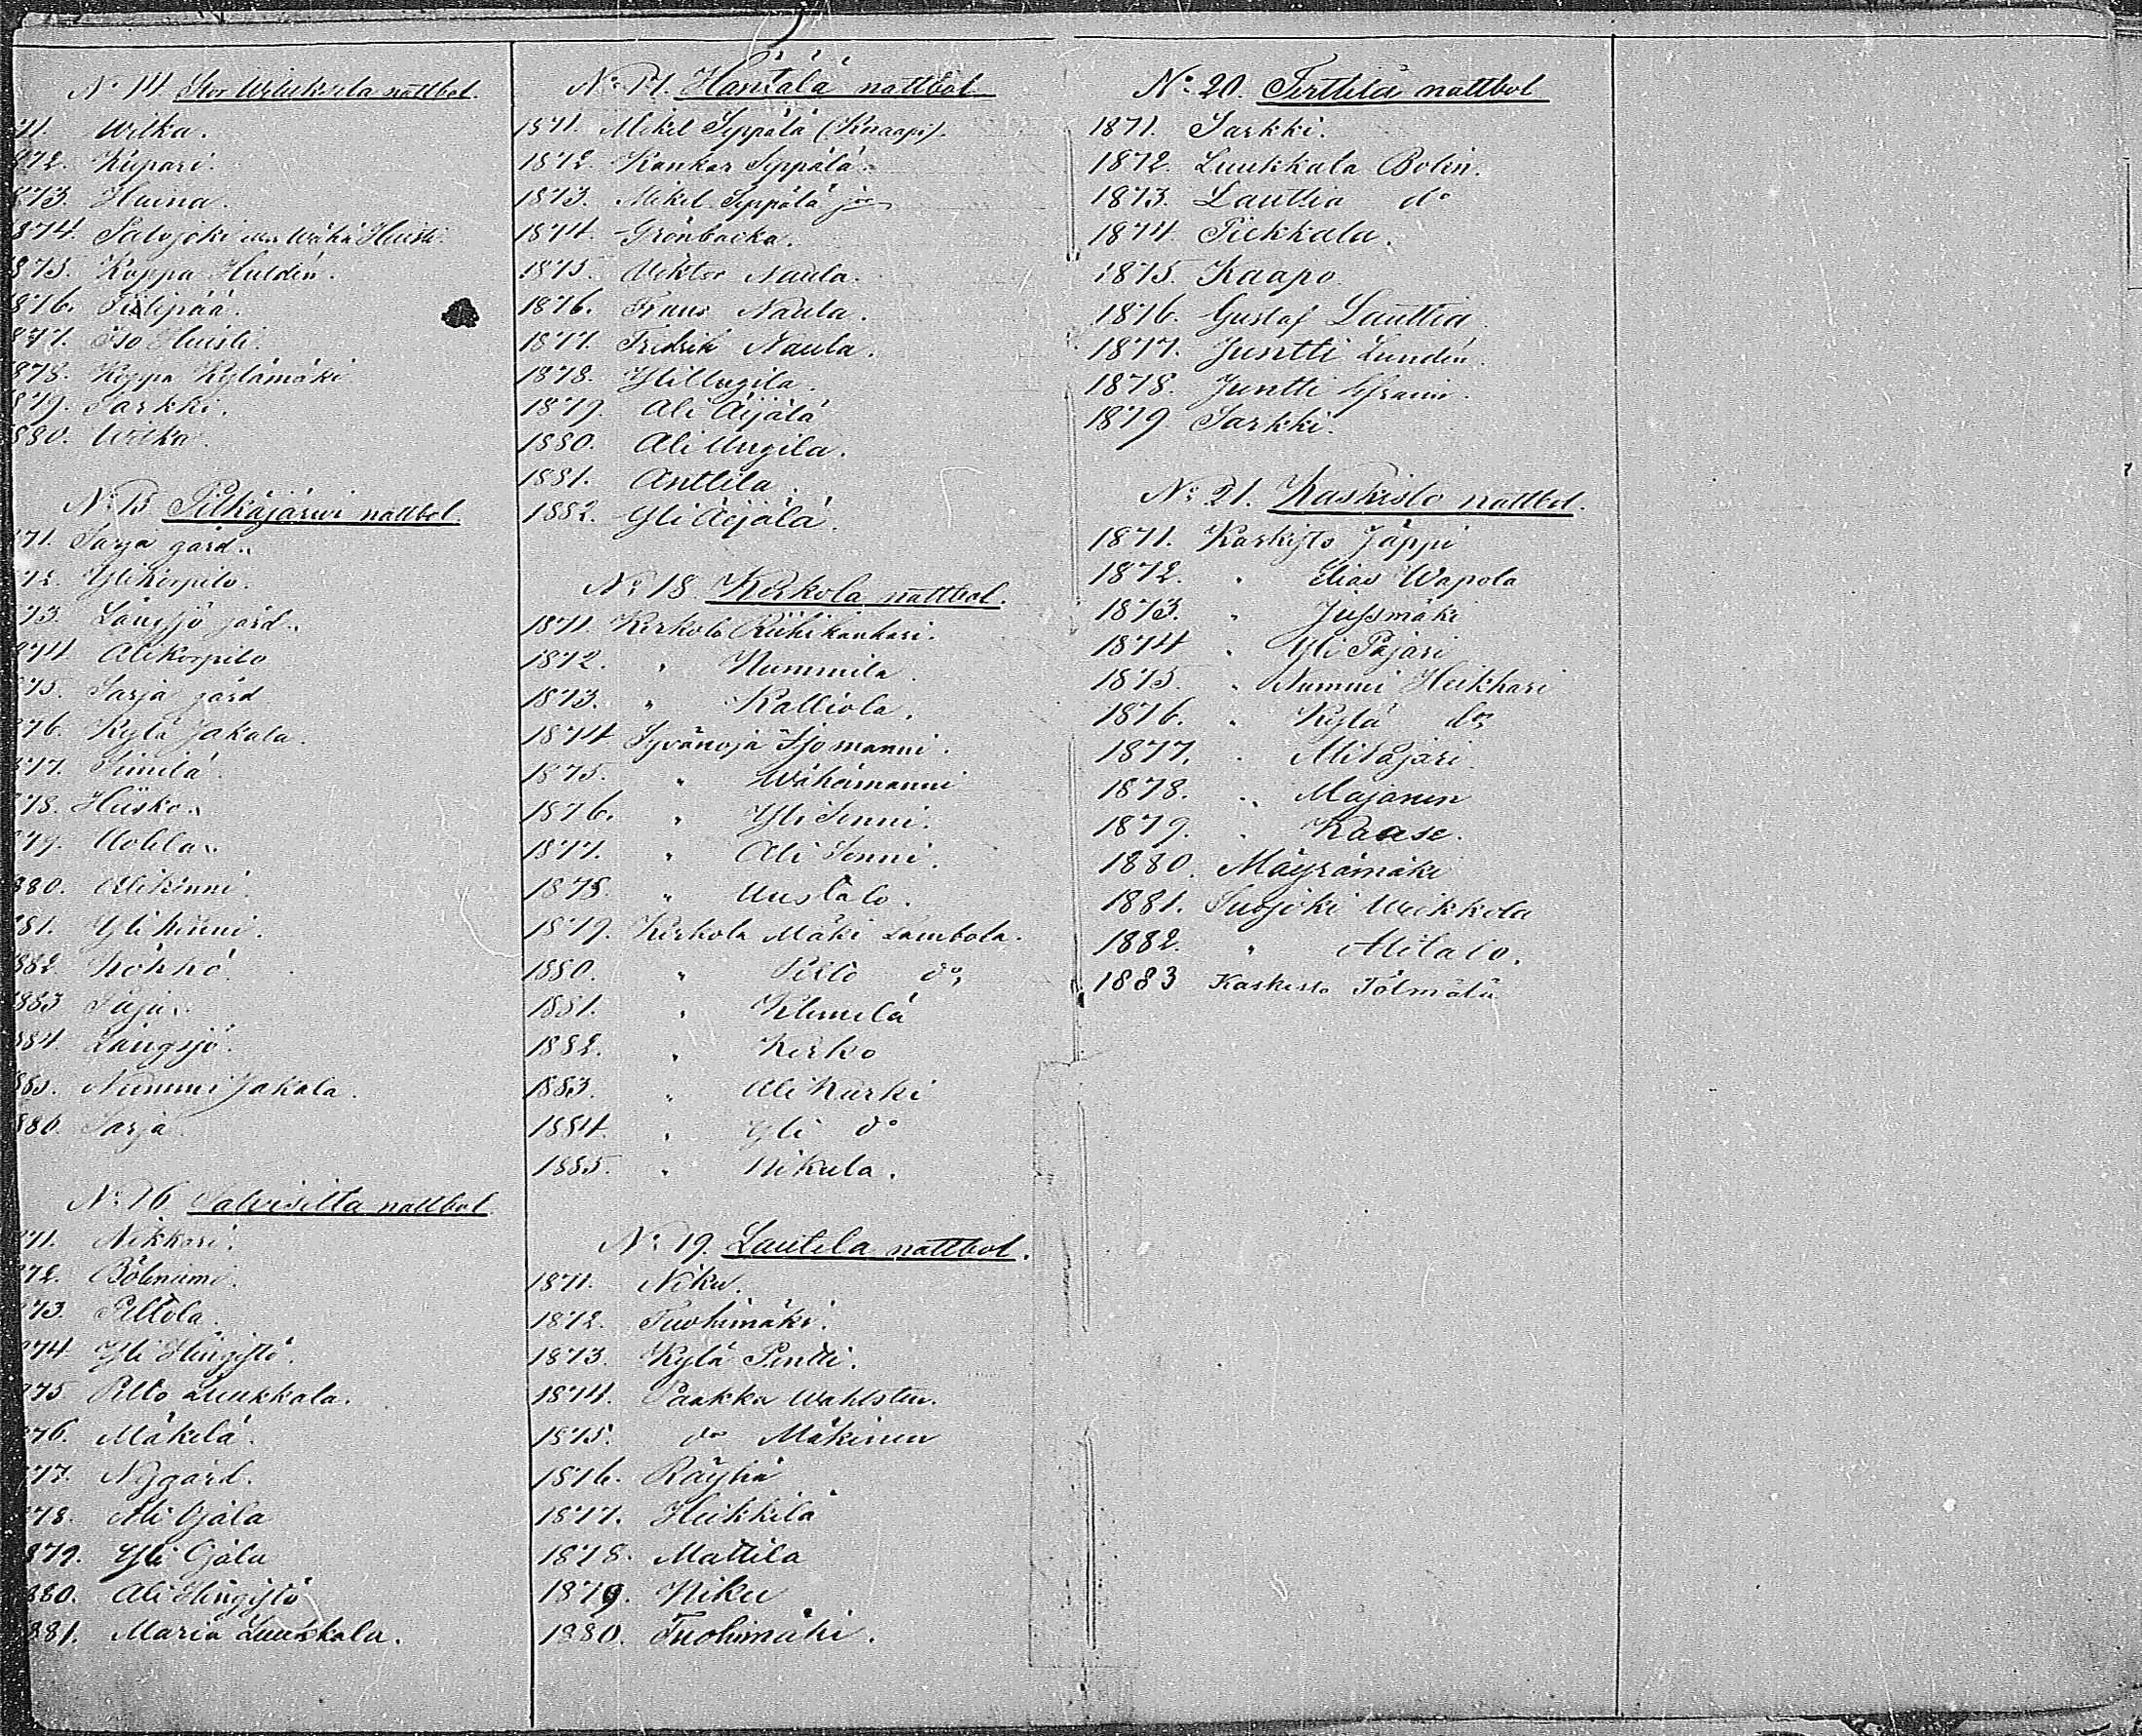 N:o 14 Stor Wiluksela nattbol.
71. Wilka.
872. Kupari.
873. Huina.
1874. Salojoki eller Wähä Huisti.
875. Koppa Huldin.
1876. Tiilipää.
877. Iso Huisti.
878. Koppa Kylämäki
879. Sarkki.
880. Wilka.
N:o 15 Pitkäjärwi nattbol.
71. Sarja gård.
72. Yli Korpilo.
73. Långsjö gård.
874. Ali Korpilo
875. Sarja gård
876. Kylä Jakala.
877. Simila.
878. Hiisko.
879. Uotila.
880. Ali Kinni.
881. Yli Kinni.
882. Kökkö.
883 Paju.
884. Långsjö.
885. Nummi Jakala.
886. Sarja.
N:o 16 Palwisilta nattbol.
71. Nikkari.
72. Böbnimi.
73. Peltola.
874 Yli Hingistö.
875 Pelto Luukkala.
876. Mäkelä.
877. Nygård.
878. Ali Ojala
879. Yli Ojala
880. Ali Hingistö
881. Maria Luukkala.
N:o 17. Hantala nattbol
1871. Mikel Seppälä (Knaapi).
1872. Kankar Seppälä.
1873. Mikel Seppälä j:or
1874. Grönbacka.
1875. Wiktor Naula.
1876. Frans Naula.
1877. Fredrik Naula.
1878. Yli Ungila.
1879. Ali Äijälä
1880. Ali Ungila.
1881. Anttila.
1882. Yli Äijälä.
N:o 18. Kerkola nattbol.
1871. Kerkola Riihikankari.
1872. " Nummila.
1873. " Kalliola.
1874 Syvänoja Isomanni.
1875. " Wähämanni
1876. " Yli Senni.
1877. " Ali Senni.
1878. " Uustalo.
1879. Kerkola Mäki Lambola.
1880. " Pelto d:o
1881. " Klemelä
1882. " Kerko
1883. " Ali Kurki
1884. " Yli d:o
1885. " Nikula.
N:o 19. Lautela nattbol.
1871. Niku.
1872. Tuohimäki.
1873. Kylä Pentti.
1874. Paakka Wahlsten.
1875. d:o Mäkinen
1876. Räyhä
1877. Heikkilä
1878. Mattila
1879. Niku
1880. Tuohimäki.
N:o 20. Terttilä nattbol
1871. Sarkki.
1872. Luukkala Bolin.
1873. Lauttia d:o
1874 Piekkala.
1875. Kaapo
1876. Gustaf Lauttia
1877. Juntti Lundén.
1878. Juntti Efraim.
1879 Sarkki.
N:o 21. Kaskisto nattbol.
1871. Kaskisto Jäppi
1872. " Elias Wapola
1873. " Jussmäki
1874 " Yli Pajari
1875 " Nummi Heikkari
1876. " Kylä d:o
1877. " Ali Pajari.
1878. " Majanen
1879. " Kaase.
1880. Mäyrämäki
1881. Suojoki Weikkola
1882. " Alitalo.
1883 Kaskisto Tölmälä